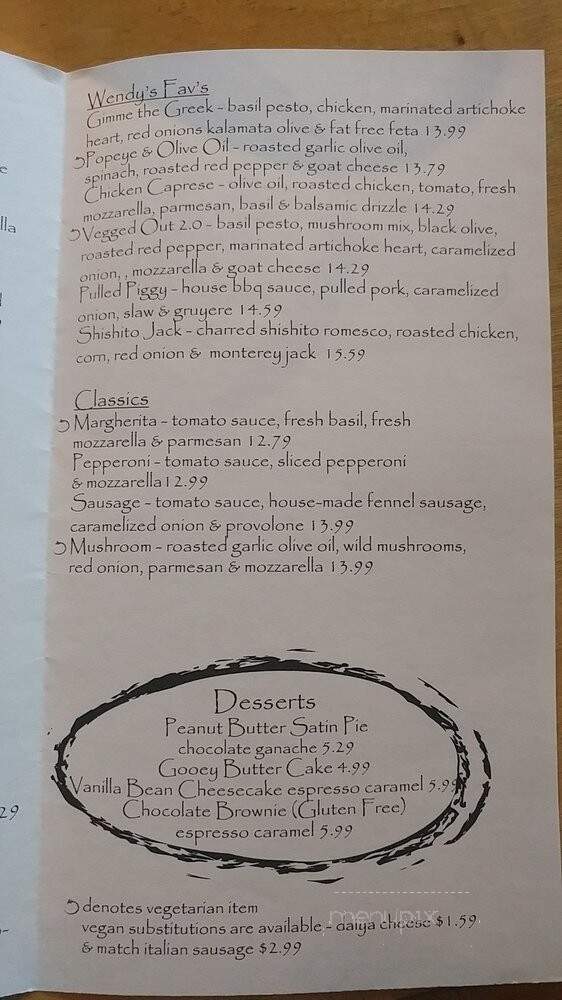 Wendy's Fav's
Gimme the Greek - basil pesto, chicken, marinated artichoke
heart, red onions kalamata olive & fat free feta 13.99
Popeye & Olive Oil - roasted garlic olive oil,
spinach, roasted red pepper & goat cheese 13.79
Chicken Caprese - olive oil, roasted chicken, tomato, fresh
mozzarella, parmesan, basil & balsamic drizzle 14.29
Vegged Out 2.0 - basil pesto, mushroom mix, black olive,
roasted red pepper, marinated artichoke heart, caramelized
onion, , mozzarella & goat cheese 14.29
Pulled Piggy - house bbq sauce, pulled pork, caramelized
onion, slaw & gruyere 14.59
Shishito Jack - charred shishito romesco, roasted chicken,
corn, red onion & monterey jack 15.59
Classics
Margherita - tomato sauce, fresh basil, fresh
mozzarella & parmesan 12.79
Pepperoni - tomato sauce, sliced pepperoni
& mozzarella 12.99
Sausage - tomato sauce, house-made fennel sausage,
caramelized onion & provolone 13.99
Mushroom - roasted garlic olive oil, wild mushrooms,
red onion, parmesan & mozzarella 13.99
Desserts
Peanut Butter Satin Pie
chocolate ganache 5.29
Gooey Butter Cake 4.99
Vanilla Bean Cheesecake espresso caramel 5.99
Chocolate Brownie (Gluten Free)
espresso caramel 5.99
denotes vegetarian item
vegan substitutions are available - daiya cheese $1.59
& match italian sausage $2.99
menupix